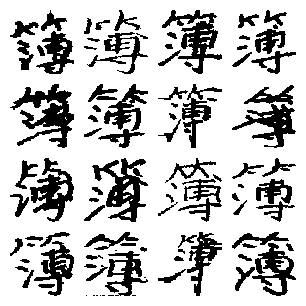 簿簿簿簿
簿簿簿簿
簿簿簿簿
簿簿簿簿